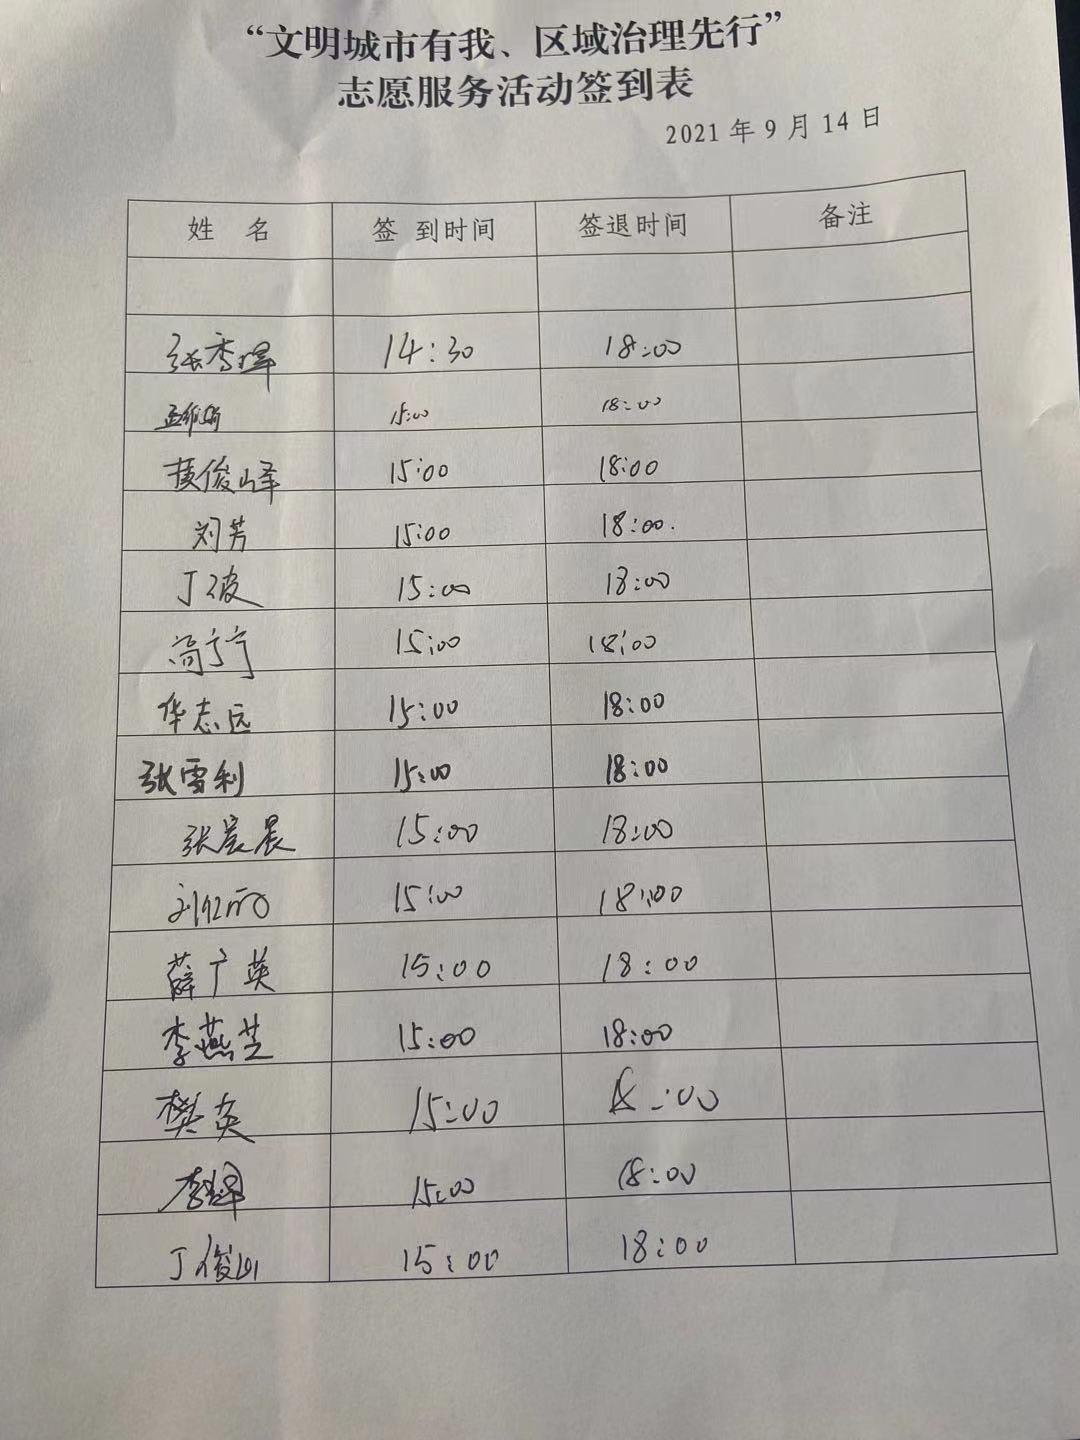 “文明城市有我、区域治理先行”
志愿服务活动签到表
2021年9月14日
姓 名 签 到时间 签退时间 备注
14:30 18:00
15:00 18:00
俊峰 15:00 18:00
刘芳 15:00 18:00.
丁波 15:00 18:00
高宁宁 15:00 18:00
华志远 15:00 18:00
张雪利 15:00 18:00
张晨晨 15:00 18:00
15:00 18:00
薛广英 15:00 18:00
李燕芝 15:00 18:00
樊英 15:00 18:00
15:00 18:00
丁俊山 15:00 18:00